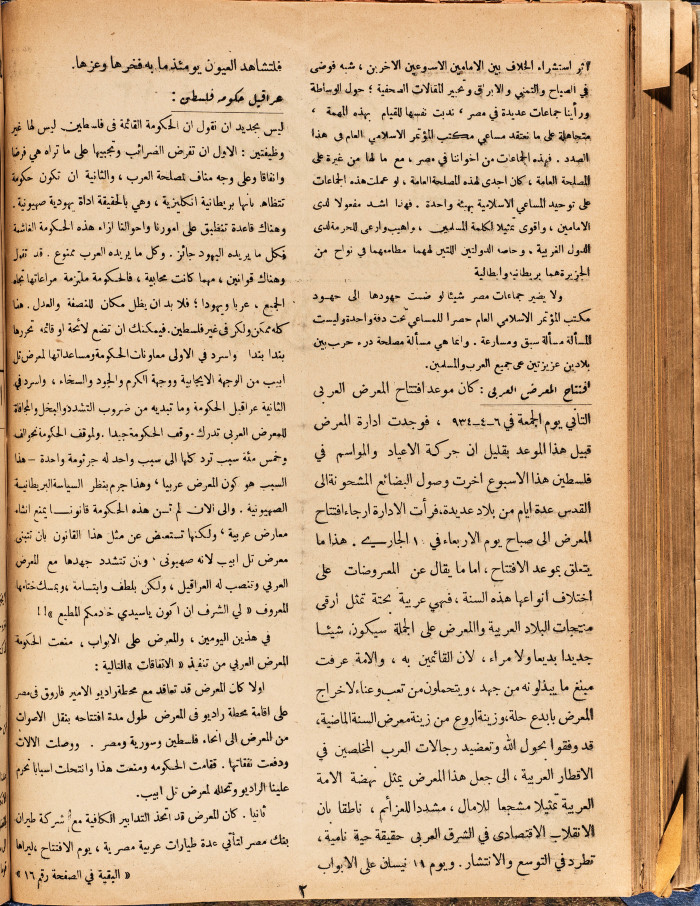 اثر استشراء الخلاف بين الامامين الاسوعين الاخرين ، شبه فوضى
في الصياح والتمني والابراق وتحبير المقالات الصحفية ؛ حول الوساطة
ورأينا جماعات عديدة في مصر ، ندبت نفسها للقيام بهذه المهمة ،
متجاهلة على ما نعتقد مساعي مكتب المؤتمر الاسلامي العام في هذا
الصدد . فهذه الجماعات من اخواننا في مصر ، مع ما لها من غيرة على
المصلحة العامة ، كان اجدى لهذه المصلحة العامة ، لو عملت هذه الجماعات
على توحيد المساعي الاسلامية بهيئة واحدة . فهذا اشد مفعولا لدى
الامامين ، واقوى تمثيلا لكلمة المسلمين ، واهيب وارعى للحرمة لدى
الدول الغربية . وخاصه الدولتين اللتين لهما مطامعهما في نواح من
الجزيرة هما بريطانيه وايطالية
ولا يضير جماعات مصر شيئا لو ضمت جهودها الى جهود
مكتب المؤتمر الاسلامي العام حصرا للمساعي تحت دفة واحدة وليست
المسألة مسألة سبق ومسارعة . وانما هي مسألة مصلحة درء حرب بين
بلادين عزيزتين على جميع العرب والمسلمين.
افتتاح المعرض العربي : كان موعد افتتاح المعرض العربي
الثاني يوم الجمعة في ٦-٤-٩٣٤ ، فوجدت ادارة المعرض
قبيل هذا الموعد بقليل ان حركة الاعياد والمواسم في
فلسطين هذا الاسبوع اخرت وصول البضائع المشحونة الى
القدس عدة ايام من بلاد عديدة. فرأت الادارة ارجاء افتتاح
المعرض الى صباح يوم الاربعاء في ١٠ الجاري . هذا ما
يتعلق بموعد الافتتاح ، اما ما يقال عن المعروضات على
اختلاف انواعها هذه السنة ، فهي عربية بحتة تمثل ارقى
منتجات البلاد العربية والمعرض على الجملة سيكون شيئا
جديدا بديعا ولا مراء ، لان القائمين به ، والامة عرفت
مبلغ ما يبذلونه من جهد ، ويتحملون من تعب وعناء لاخراج
المعرض بابدع حلة، وزينة اروع من زينة معرض السنة الماضية،
قد وفقوا بحول الله وتعضيد رجالات العرب المخلصين في
الاقطار العربية ، الى جعل هذا المعرض يمثل نهضة الامة
العربية تمثيلا مشجعا للامال ، مشددا للعزائم ، ناطقا بان
الانقلاب الاقتصادي في الشرق العربي حقيقة حية نامية ،
تطرد في التوسع والانتشار . ويوم نيسان على الابواب
فلتشاهد العيون يومئذ ما به فخرها وعزها.
عراقيل حكومة فلسطين :
ليس بجديد ان نقول ان الحكومة القائمة في فلسطين ليس لها غير
وظيفتين : الاول ان تفرض الضرائب وتجبيها على ما تراه هي فرضا
وانفاقا وعلى وجه مناف لمصلحة العرب ، والثانية ان تكون حكومة
تتظاهر بأنها بريطانية انكليزية ، وهي بالحقيقة اداة يهودية صهيونية .
وهناك قاعدة تنطبق على امورنا واحوالنا ازاء هذه الحكومة الغاشمة
فكل ما يريده اليهود جائز . وكل ما يريده العرب ممنوع . قد تقول
وهناك قوانين ، مهما كانت محابية ، فالحكومة ملزمة مراعاتها تجاه
الجميع ، عربا ويهودا ؛ فلا بد ان يظل مكان للنصفة والعدل . هذا
كله ممكن ولكن في غير فلسطين. فيمكنك ان تضع لائحة او قائمة تحررها
بندا بندا واسرد في الاولى معاونات الحكومة ومساعداتها لمعرض تل
ابيب من الوجهة الايجابية ووجهة الكرم والجود والسخاء ، واسرد في
الثانية عراقيل الحكومة وما تبديه من ضروب التشدد والبخل والمجافاة
للمعرض العربي تدرك موقف الحكومة جيدا . ولموقف الحكومة نحو الف
وخمس مئة سبب ترد كلها الى سبب واحد له جرثومة واحدة - هذا
السبب هو كون المعرض عربيا ، وهذا جرم بنظر السياسة البريطانية
الصهيونية . والى الان لم تسن هذه الحكومة قانونا يمنع انشاء
معارض عربية ، ولكنها تستعيض عن مثل هذا القانون بان تتبنى
معرض تل ابيب لانه صهيوني ، وبان تتشدد جهدها مع المعرض
العربي وتنصب له العراقيل ، ولكن بلطف وابتسامة ، ويمسك ختامها
المعروف « لي الشرف ان اكون ياسيدي خادمكم المطيع »!!
في هذين اليومين ، والمعرض على الابواب ، منعت الحكومة
المعرض العربي من تنفيذ « الاتفاقات » التالية :
اولا كان المعرض قد تعاقد مع محطة راديو الامير فاروق في مصر
على اقامة محطة راديو في المعرض طول مدة افتتاحه بنقل الاصوات
من المعرض الى انحاء فلسطين وسورية ومصر . ووصلت الالات
ودفعت نفقاتها . فقامت الحكومه ومنعت هذا وانتحلت اسبابا تحرم
علينا الراديو وتحلله لمعرض تل ابيب.
ثانيا . كان المعرض قد اتخذ التدابير الكافية مع شركة طيران
بنك مصر لتأتي عدة طيارات عربية مصرية ، يوم الافتتاح ، ليراها
« البقية في الصفحة رقم ١٦ »
٢